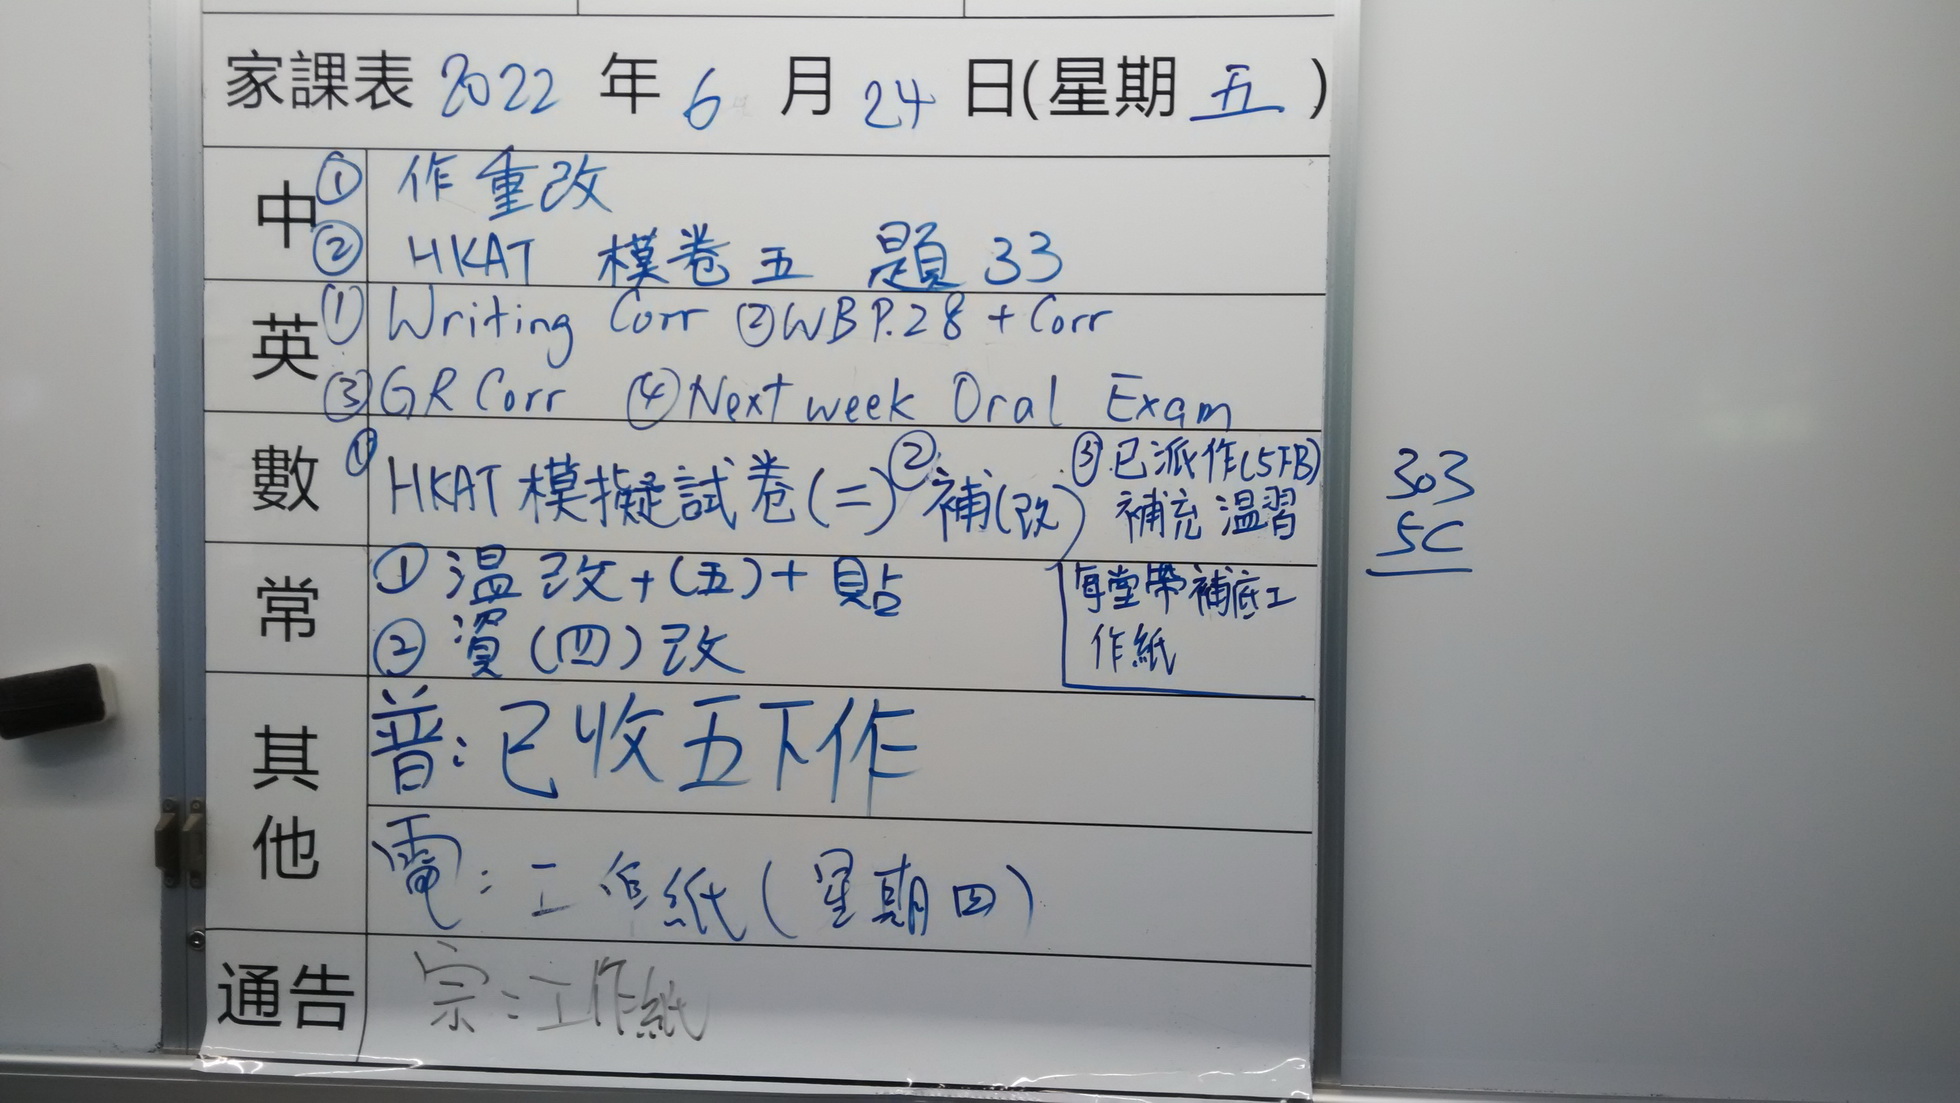 家課表 2022 年 6 月 24 日(星期 五 )
中
① 作重改
② HKAT 模卷五 題33
英
① Writing Corr ② WB P.28 + Corr
③ GR Corr ④ Next week Oral Exam
數
① HKAT 模擬試卷(二) ② 補(改)
③ 已派作(5下B)
補充溫習
303
5C
常
① 溫改+(五)+貼
② 資(四)改
每堂帶補底工
作紙
其他
普:已收五下作
電:工作紙(星期四)
通告
宗:工作紙